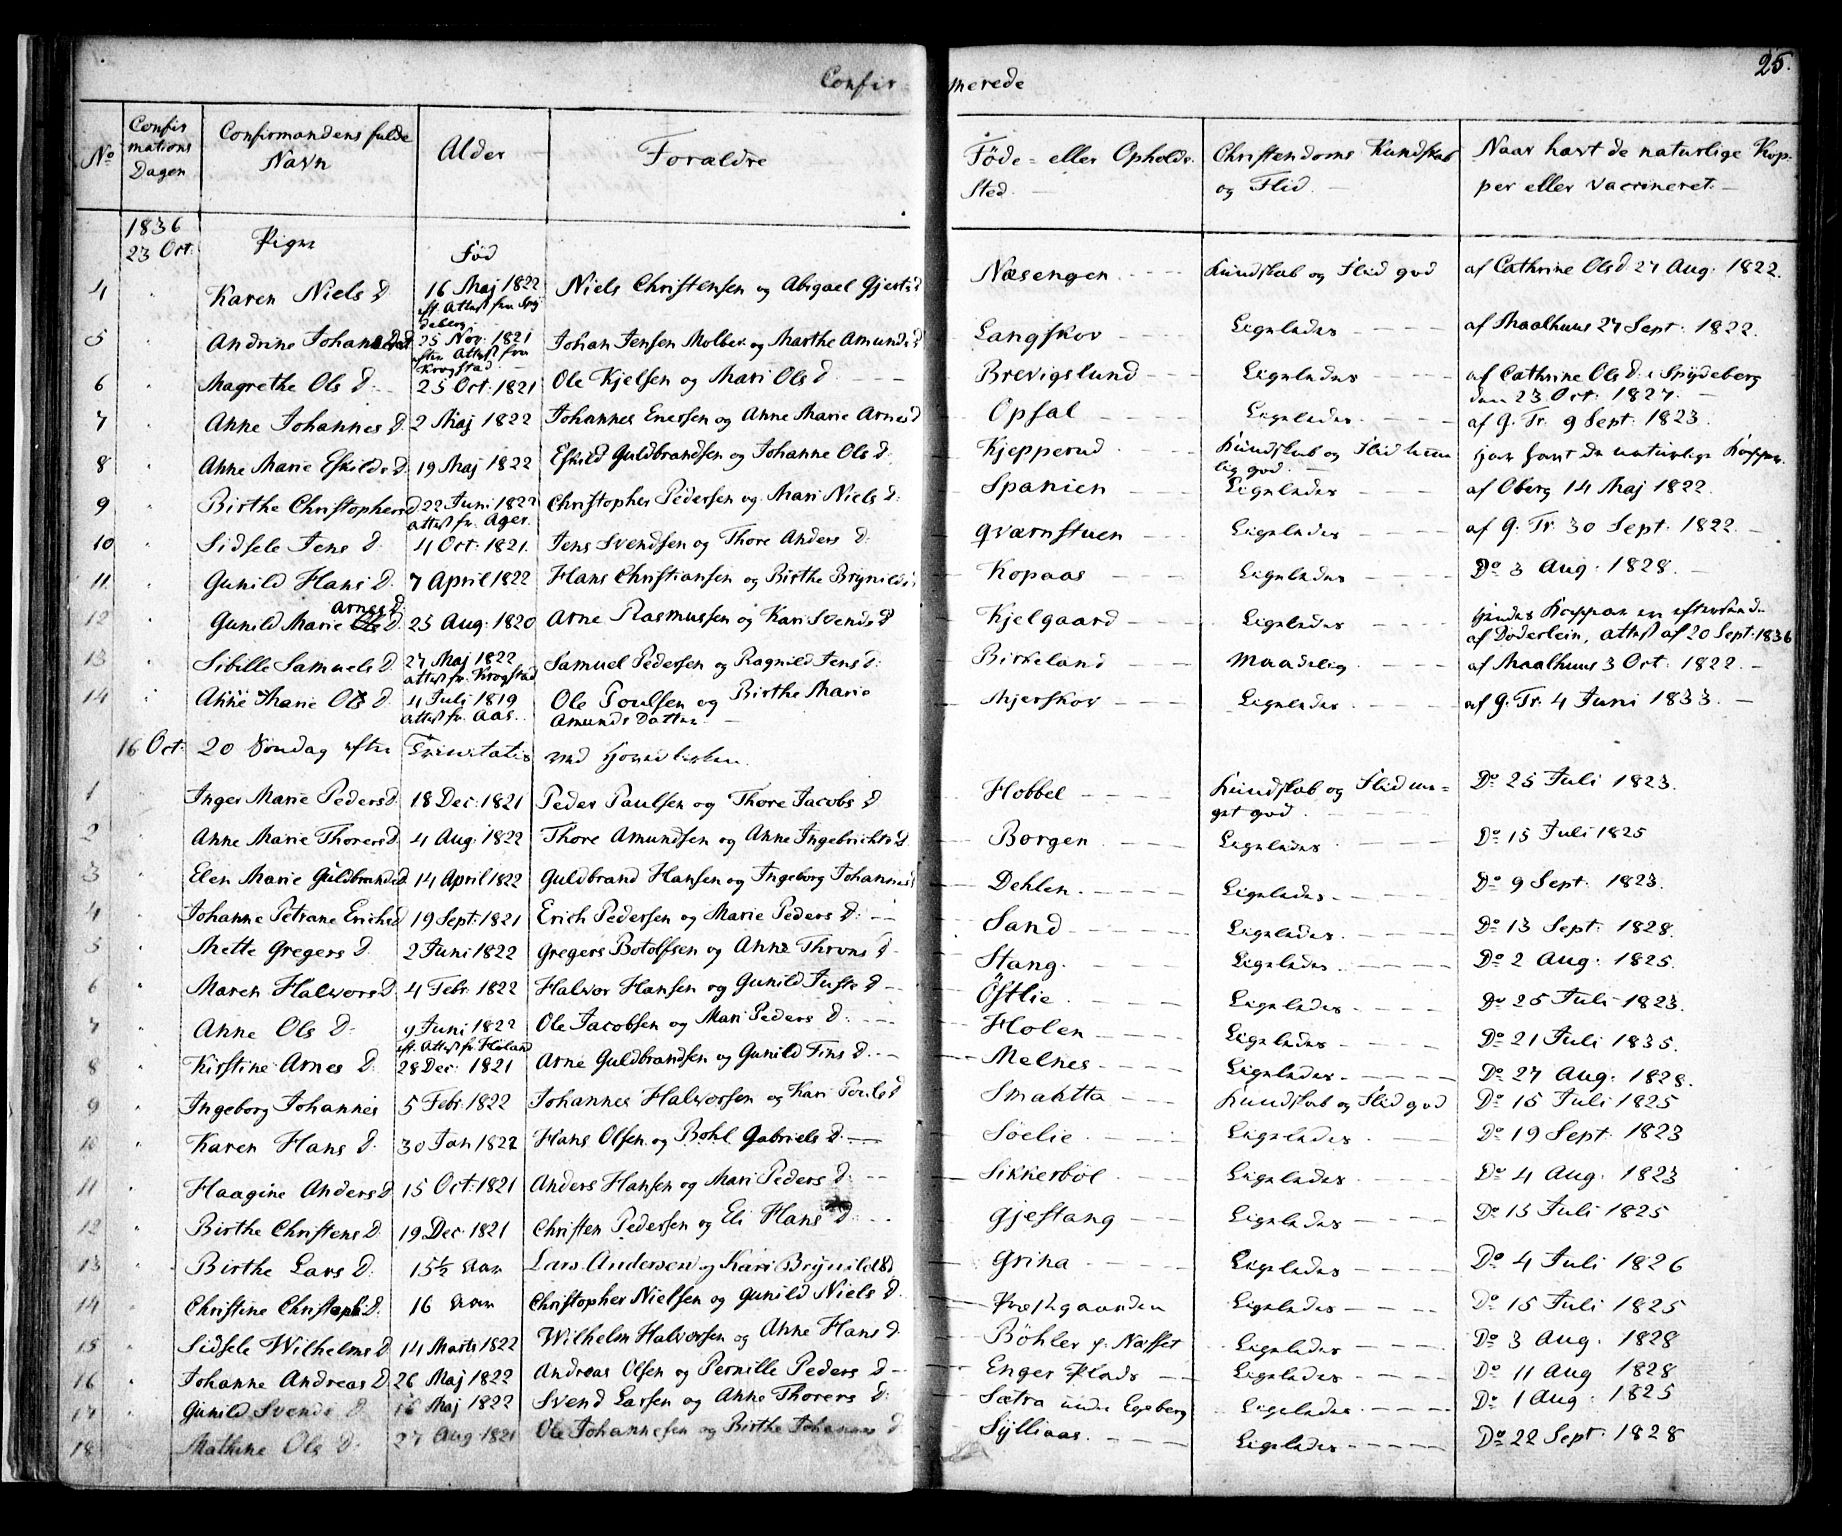 25.
Confirmerede
No | Confirmations Dagen | Confirmandens fulde Navn | Alder | Forældre | Føde- eller Opholds Sted | Christendoms Kundskab og Flid | Naar havt de naturlige Kopper eller vaccineret
1836 23 Oct: | Piger | Fød
4 | Karen Niels D | 16 Maj 1822 eft. Attest fra Spydeberg | Niels Christensen og Abigael Gjertsd | Næsengen | Kundskab og Flid god | af Cathrine Olsd 27 Aug: 1822.
5 | Andrine Johansd | 25 Nov: 1821 efter Attest fra Krogstad | Johan Jensen Molber og Marthe Amundsd | Langskov | Ligeledes | af Maalhuus 27 Sept: 1822.
6 | Magrethe Ols D | 25 Oct: 1821 | Ole Kjelsen og Mari Ols D | Brevigslund | Ligeledes | af Cathrine Ols D: i Spydeberg den 23 Oct: 1827.
7 | Anne Johannes D. | 2 Maj 1822 | Johannes Enersen og Anne Marie Arnesd | Opsal | Ligeledes | af G. Tr. 9 Sept: 1823.
8 | Anne Marie Eskilds D. | 19 Maj 1822 | Eskild Guldbrandsen og Johanne Ols D. | Kjepperud | Kundskab og Flid temelig god | har havt de naturlige Kopper.
9 | Birthe Christophersd | 22 Juni 1822 Attest fr. Ager. | Christopher Pedersen og Mari Niels D: | Spanien | Ligeledes | af Oberg 14 Maj 1822.
10 | Sidsele Jens D. | 4 Oct: 1821. | Jens Svendsen og Thore Anders D: | Qværnstuen | Ligeledes | af G. Tr. 30 Sept: 1822.
11 | Gunild Hans D. | 7 April 1822 | Hans Christiansen og Birthe Brynilds | Kopaas | Ligeledes | Do 3 Aug: 1828.
12 | Gunild Marie Arnes D. | 25 Aug: 1820 | Arne Rasmussen og Kari Svends D | Kjelgaard | Ligeledes | hendes Kopper er eftersaad af Döderlein, attest af 20 Sept: 1836
13 | Sibille Samuels D | 27 Maj 1822 attest fr. Krogstad | Samuel Pedersen og Ragnild Jens D: | Birkeland | Maadelig | af Maalhuus 3 Oct: 1822.
14 | Anne Marie Ols D. | 4 Juli 1819 attest fr. Aas. | Ole Poulsen og Birthe Marie Amunds Datter | Mjerskov | Ligeledes | af G. Tr. 4 Juni 1833.
16 Oct: | 20 Søndag efter Trinitatis ved Hovedkirken.
1 | Inger Marie Peders D. | 18 Dec: 1821 | Peder Paulsen og Thore Jacobs D | Hobbel | Kundskab og Flid meget god. | Do 25 Juli 1823.
2 | Anne Marie Thorers D. | 4 Aug: 1822 | Thore Amundsen og Anne Ingebrichts D. | Borgen | Ligeledes | Do 15 Juli 1825
3 | Elen Marie Guldbrandsd | 14 April 1822 | Guldbrand Hansen og Ingeborg Johannesd | Dehlen | Ligeledes | Do 9 Sept: 1823.
4 | Johanne Petrane Erichsd | 19 Sept: 1821 | Erich Pedersen og Marie Peders D: | Sand | Ligeledes | Do 13 Sept: 1828.
5 | Mette Gregers D. | 2 Juni 1822 | Gregers Botolfsen og Anne Throns D | Stang. | Ligeledes | Do 2 Aug: 1825.
6 | Maren Halvors D. | 4 Febr: 1822 | Halvor Hansen og Gunild Juste D | Östlie | Ligeledes | Do 25 Juli 1823.
7 | Anne Ols D: | 9 Juni 1822 eft. Attest fr. Høland | Ole Jacobsen og Mari Peders D: | Holen | Ligeledes | Do 21 Juli 1835.
8 | Kirstine Arnes D: | 28 Dec: 1821 | Arne Guldbrandsen og Gunild Fins D: | Melnes | Ligeledes | Do 27 Aug: 1828.
9 | Ingeborg Johannes | 5 Febr: 1822 | Johannes Halvorsen og Kari Pouls D | Smaktta | Kundskab og Flid god | Do 15 Juli 1825
10 | Karen Hans D. | 30 Jan 1822 | Hans Olsen og Bohl Gabriels D. | Soelie | Ligeledes | Do 19 Sept: 1823
11 | Haagine Anders D | 15 Oct: 1821 | Anders Hansen og Mari Peders D: | Sikkerbøl | Ligeledes | Do 4 Aug: 1823
12 | Birthe Christens D. | 19 Dec 1821 | Christen Pedersen og Eli Hans D. | Gjestang | Ligeledes | Do 15 Juli 1825
13 | Birthe Lars D: | 15½ Aar | Lars Andersen og Kari Brynilds D | Grina | Ligeledes | Do 4 Juli 1826
14 | Christine Christoph: D. | 16 Aar | Christopher Nielsen og Gunild Niels D. | Præstgaarden | Ligeledes | Do 15 Juli 1825
15 | Sidsele Wilhelms D | 14 Marts 1822 | Wilhelm Halvorsen og Anne Hans D. | Böhler p. Næsset | Ligeledes | Do 3 Aug: 1828
16 | Johanne Andreas D. | 26 Maj 1822 | Andreas Olsen og Pernille Peders D | Enger Plads | Ligeledes | Do 11 Aug 1828
17 | Gunild Svends D. | 16 Maj 1822 | Svend Larsen og Anne Thorers D: | Sætra under Egeberg | Ligeledes | Do 1 Aug: 1825
18 | Mathine Ols D. | 27 Aug: 1821 | Ole Johannesen og Birthe Johannes D | Sylliaas | Ligeledes | Do 22 Sept: 1828